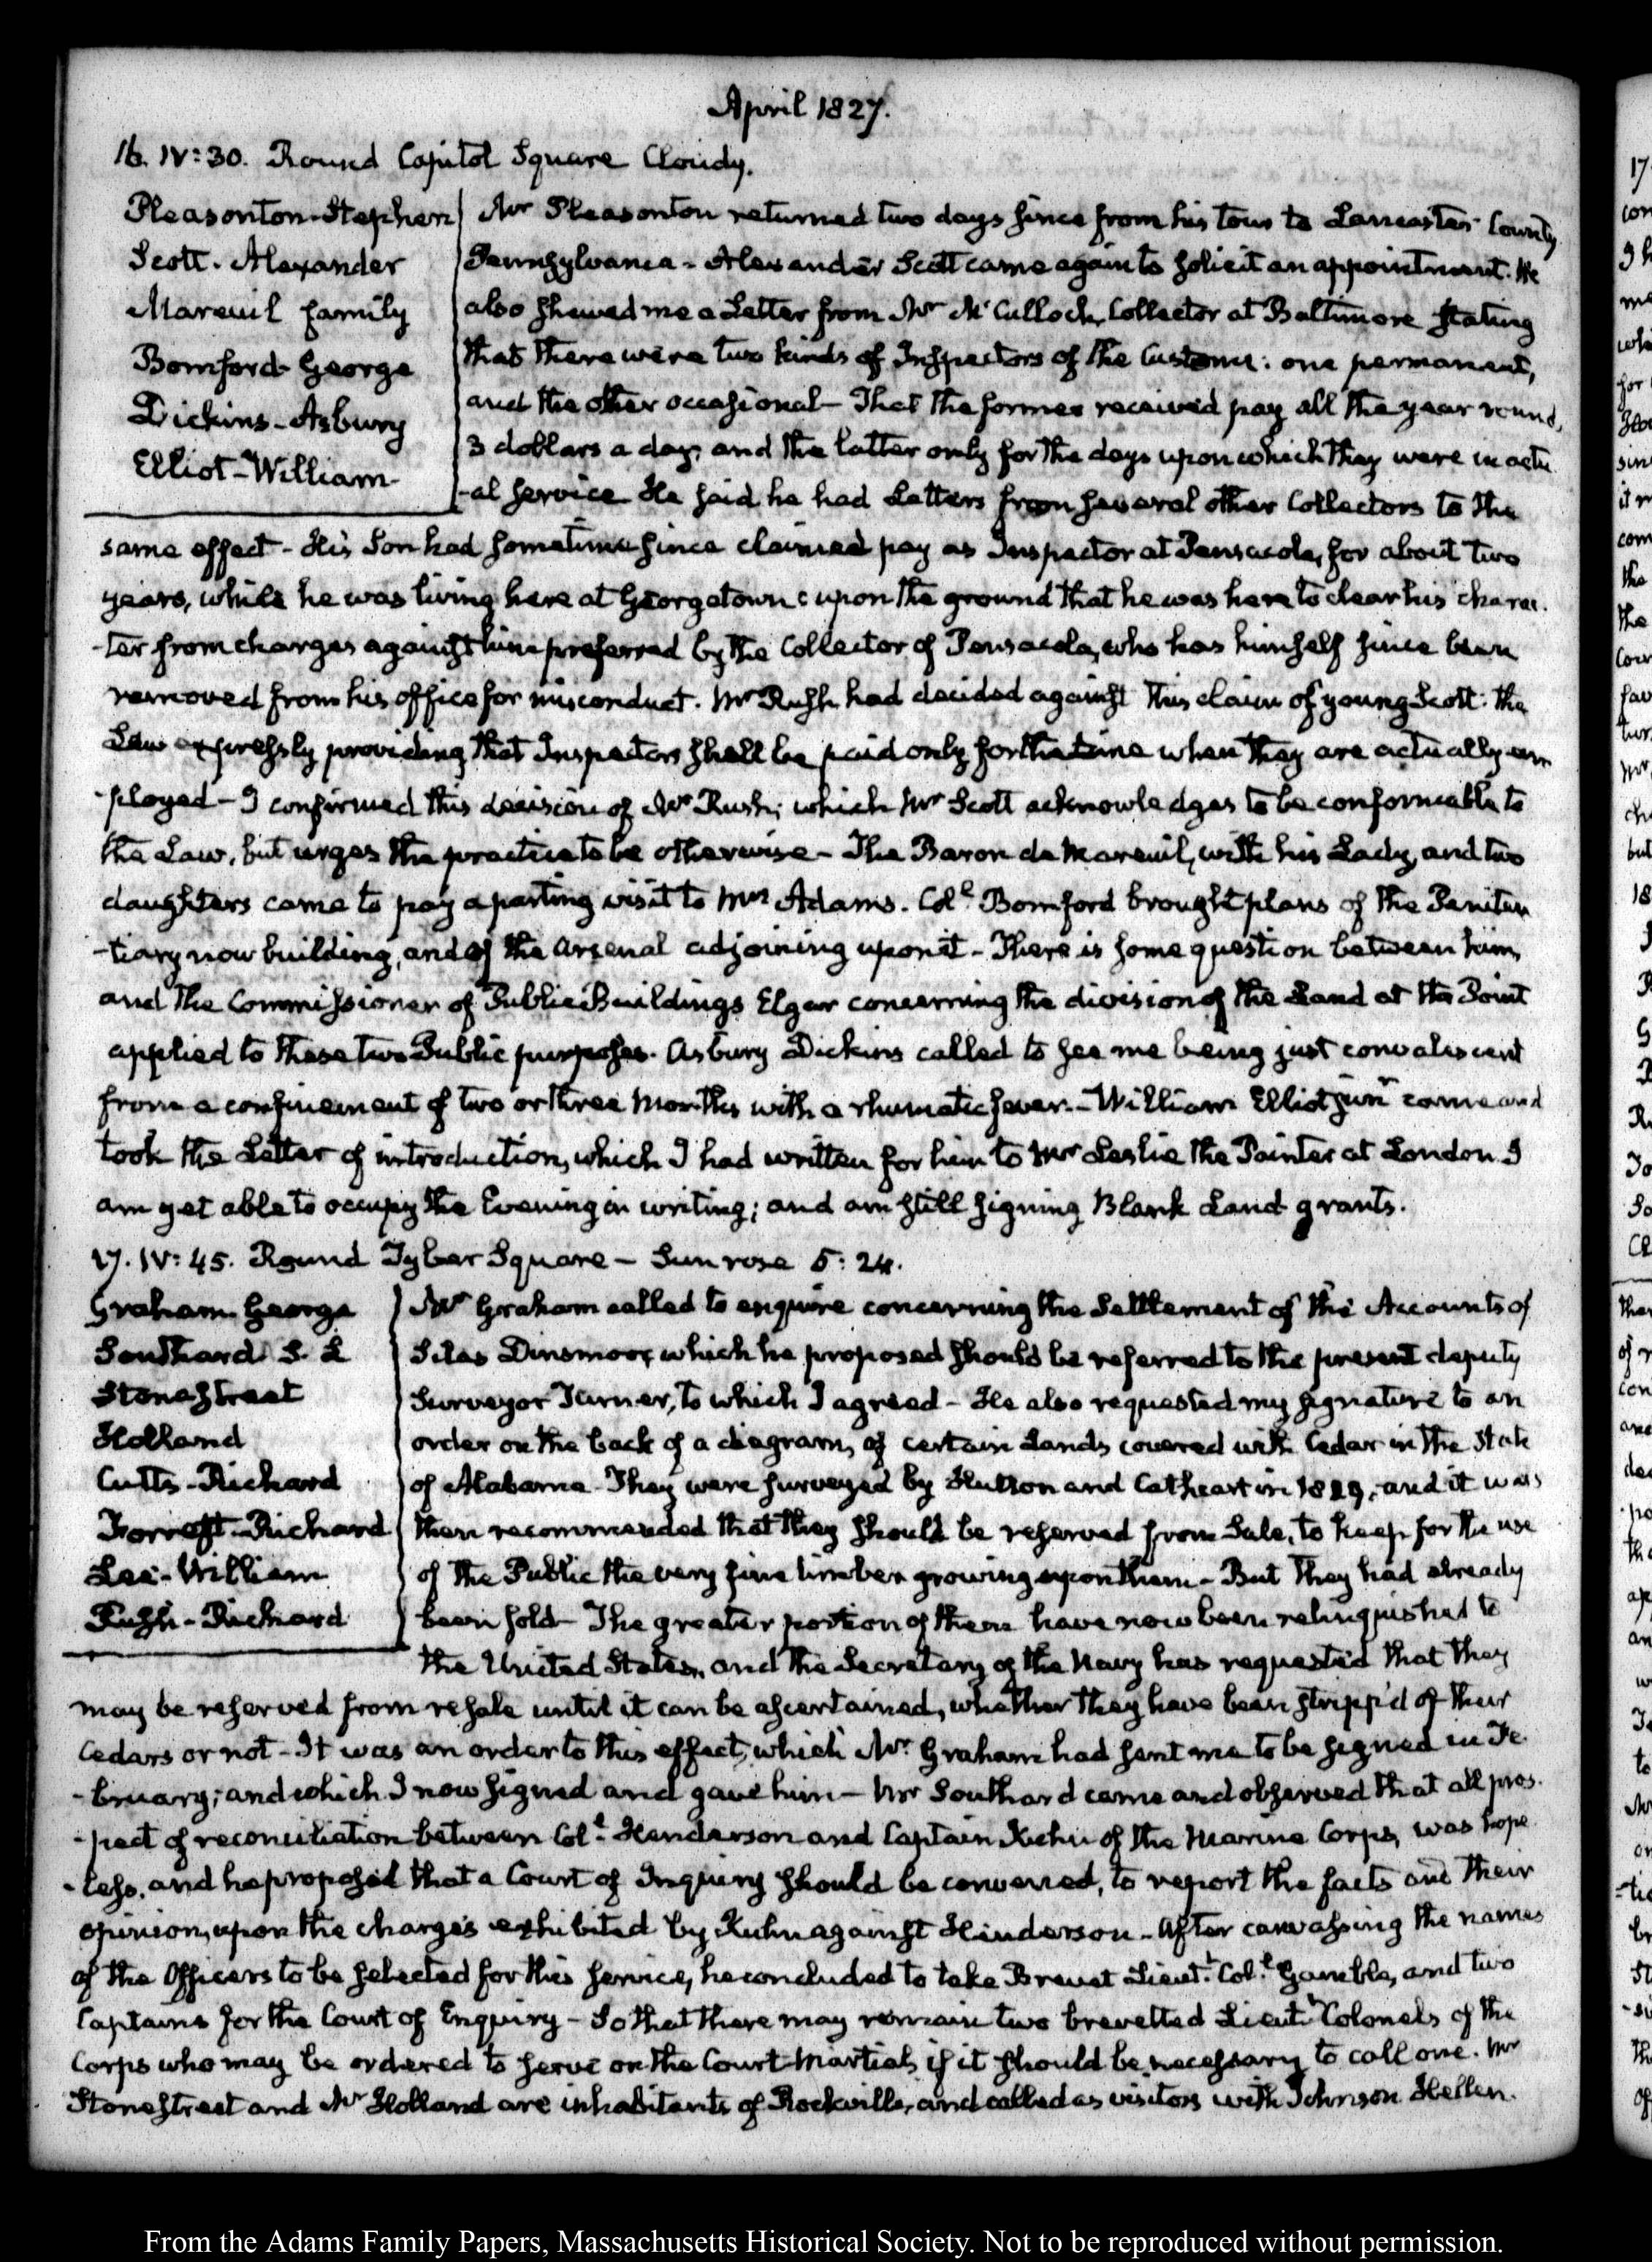 April 1827.
16. IV:30. Round Capitol Square Cloudy.
Pleasonton-Stephen
Scott. Alexander
Mareuil family
Bomford-George
Dickins-Asbury
Elliot-William
Mr Pleasonton returned two days since from his tour to Lancaster County
Pennsylvania - Alexander Scott came again to solicit an appointment. He
also shewed me a Letter from Mr McCulloch, Collector at Baltimore stating
that there were two kinds of Inspectors of the Customs: one permanent,
and the other occasional - That the former received pay all the year round,
3 dollars a day, and the latter only for the days upon which they were in actu
-al service He said he had Letters from several other Collectors to the
same effect - His Son had sometime since claimed pay as Inspector at Pensacola, for about two
years, while he was living here at Georgetown: upon the ground that he was here to clear his charac-
-ter from charges against him preferred by the Collector of Pensacola, who has himself since been
removed from his office for misconduct. Mr Rush had decided against this claim of young Scott: the
Law expressly providing that Inspectors shall be paid only for the time when they are actually em
-ployed - I confirmed this decision of Mr Rush; which Mr Scott acknowledges to be conformable to
the Law, but urges the practice to be otherwise - The Baron de Mareuil, with his Lady, and two
daughters came to pay a parting visit to Mrs Adams. Coll Bomford brought plans of the Peniten
-tiary now building, and of the Arsenal adjoining upon it - There is some question between him,
and the Commissioner of Public Buildings Elgar concerning the division of the Land at the Point
applied to these two Public purposes. Asbury Dickins called to see me being just convalescent
from a confinement of two or three Months with a rhumatic fever. - William Elliot junr came and
took the Letter of introduction, which I had written for him to Mr Leslie the Painter at London I
am yet able to occupy the Evening in writing; and am still signing Blank Land grants.
17. IV:45. Round Tyber Square - Sun rose 5:24.
Graham. George
Southard. S. L
Stonestreet
Holland
Cutts-Richard
Forrest-Richard
Lee-William
Rush-Richard
Mr Graham called to enquire concerning the Settlement of the Accounts of
Silas Dinsmoor, which he proposed should be referred to the present deputy
Surveyor Turner, to which I agreed - He also requested my signature to an
order on the back of a diagram, of certain Lands covered with Cedar in the State
of Alabama They were surveyed by Hutton and Cathcart in 1819, and it was
then recommended that they should be reserved from Sale, to keep for the use
of the Public the very fine timber growing upon them - But they had already
been sold - The greater portion of them have now been relinquished to
the United States, and the Secretary of the Navy has requested that they
may be reserved from resale until it can be ascertained, whether they have been stripp'd of their
Cedars or not - It was an order to this effect, which Mr. Graham had sent me to be signed in Fe
-bruary; and which I now signed and gave him - Mr Southard came and observed that all pros-
-pect of reconciliation between Coll Henderson and Captain Kuhn of the Marine Corps, was hope
-less, and he proposed that a Court of Inquiry should be convened, to report the facts and their
opinion, upon the charges exhibited by Kuhn against Henderson - After canvassing the names
of the Officers to be selected for this service, he concluded to take Brevet Lieutt Coll Gamble, and two
Captains for the Court of Enquiry - So that there may remain two brevetted Lieutt Colonels of the
Corps who may be ordered to serve on the Court-Martial, if it should be necessary to call one. Mr
Stonestreet and Mr Holland are inhabitants of Rockville, and called as visitors with Johnson Hellen.
From the Adams Family Papers, Massachusetts Historical Society. Not to be reproduced without permission.